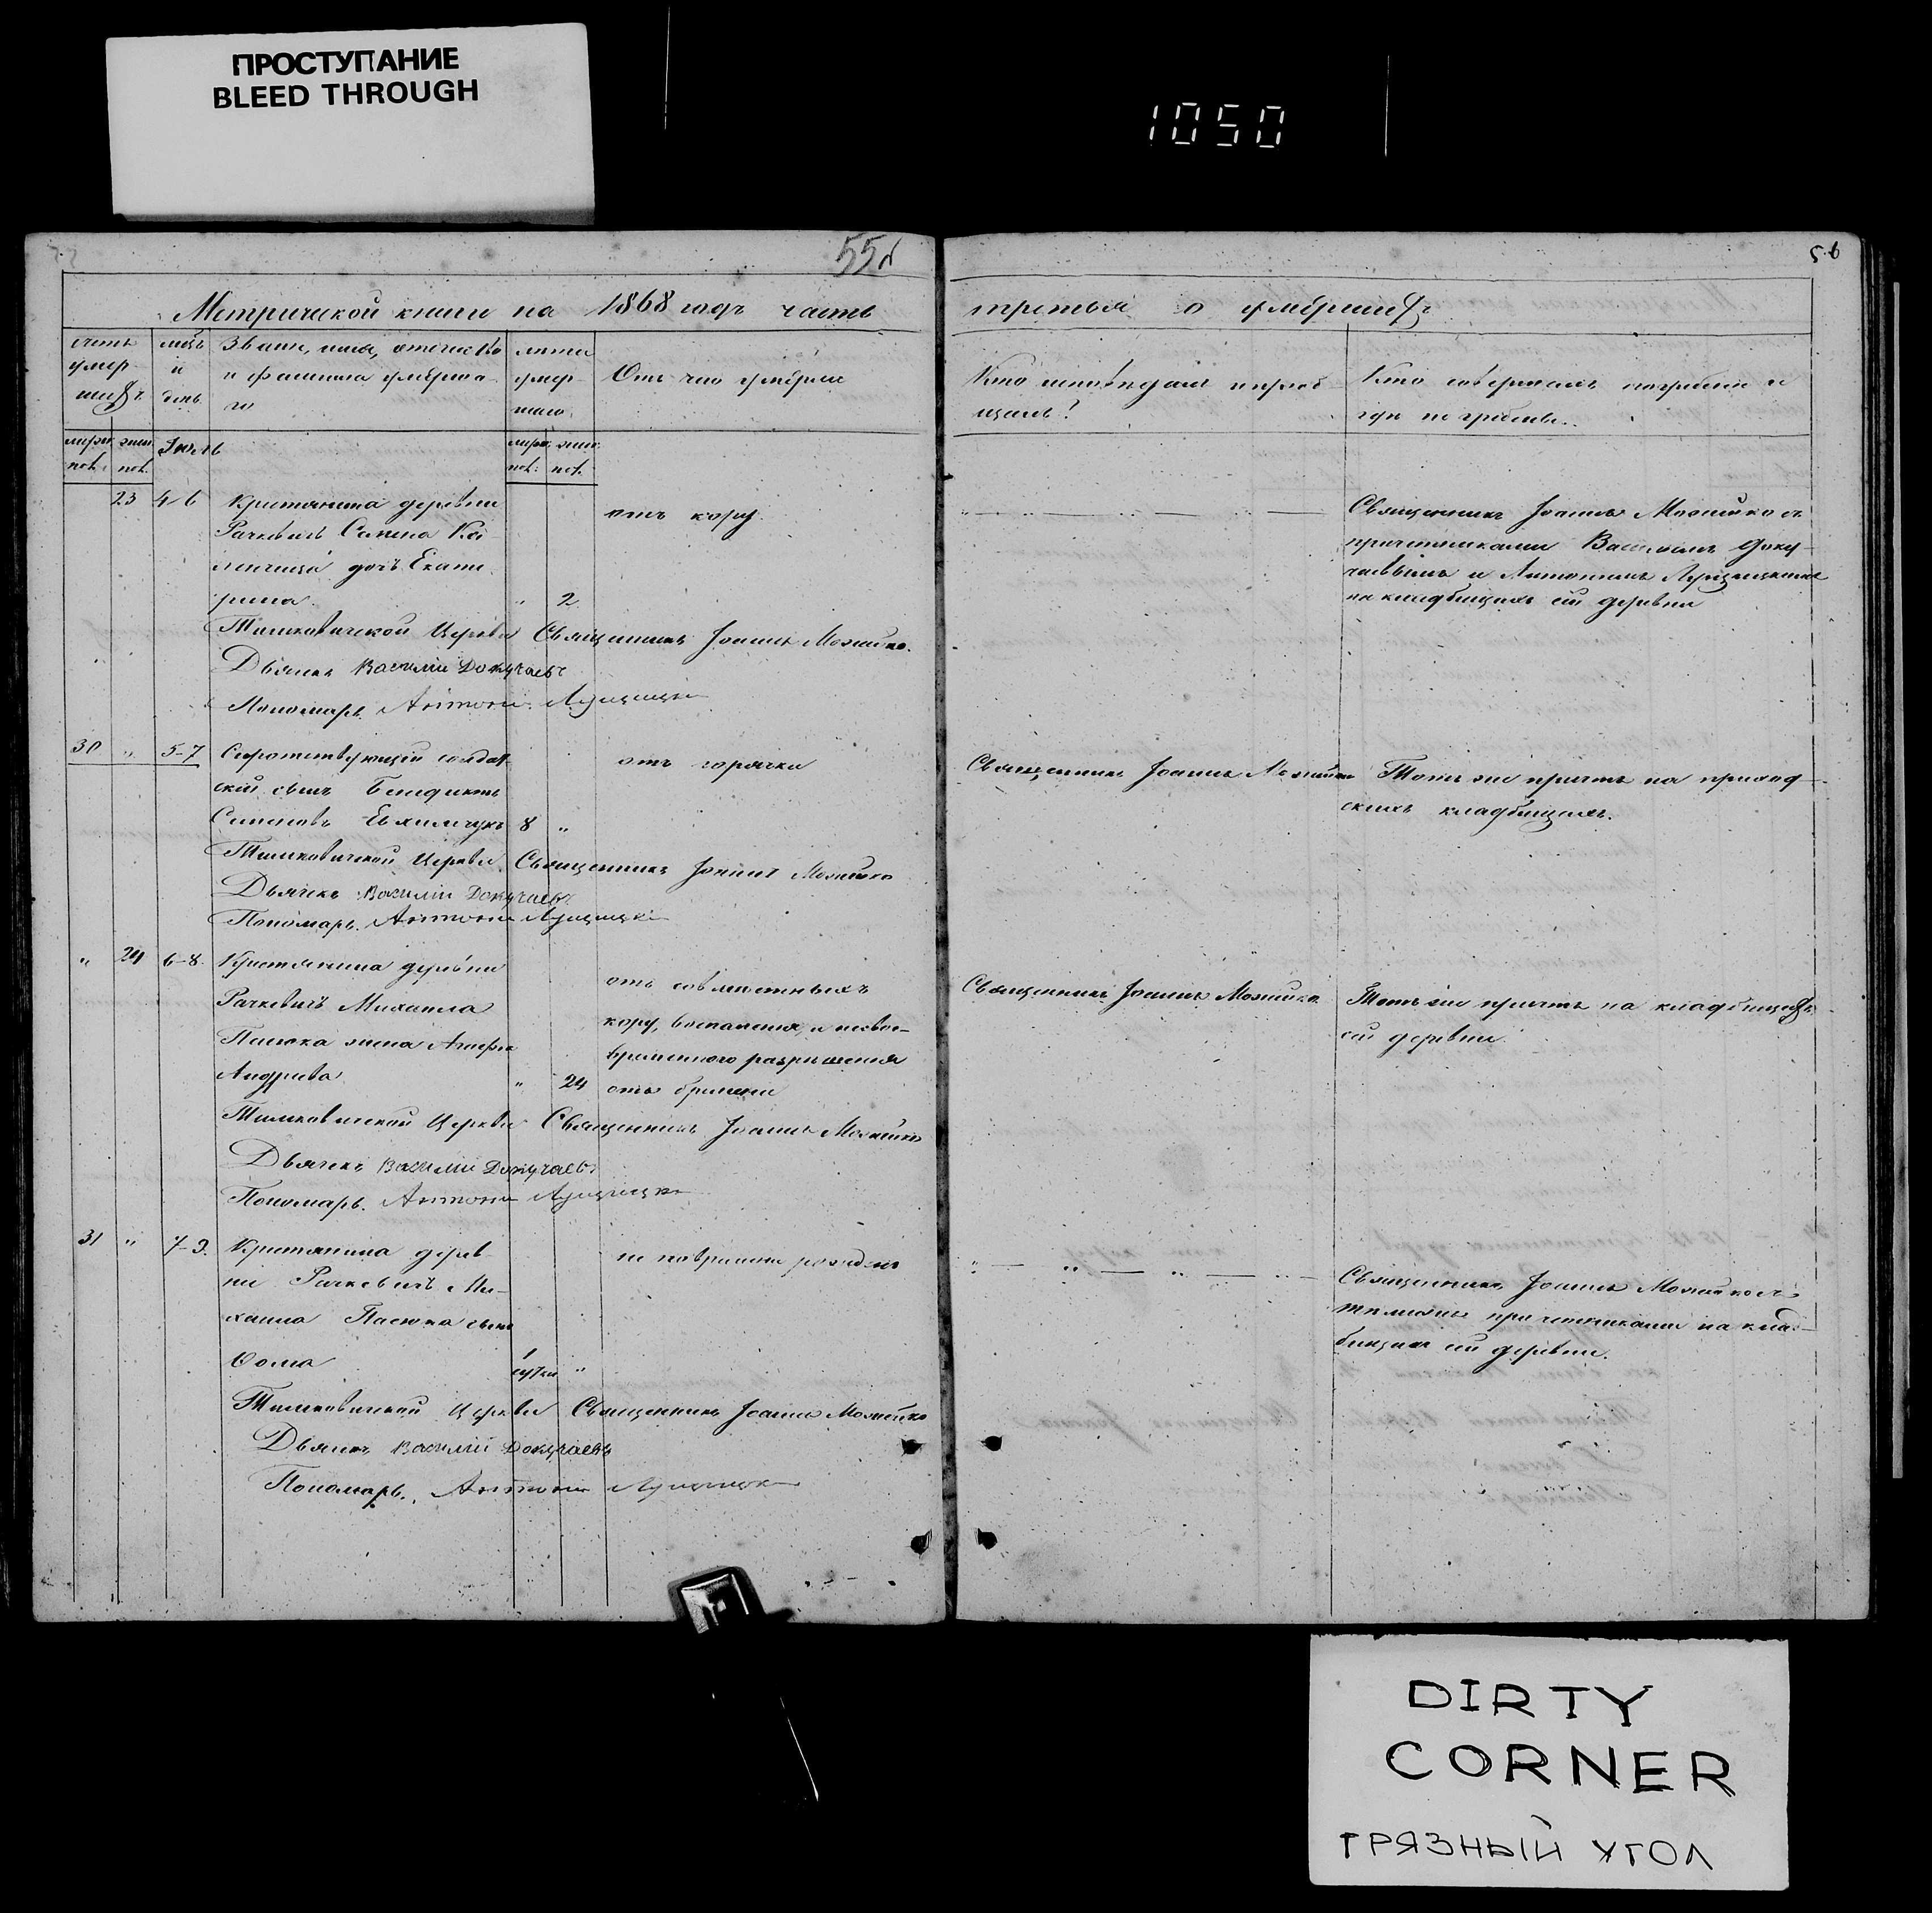 ПРОСТУПАНИЕ
BLEED THROUGH
1050
55
56
Метрической книги на 1868 годъ часть
третья о умершихъ
счетъ умер-шихъ
мцъ и день
Званіе, имя, отечество
и фамилія умерша-
го
лѣта умер-шаго
Отъ чего умерли
Кто исповѣдалъ и пріоб-
щалъ?
Кто совершалъ погребеніе и
гдѣ погребены.
муж. пол. жен. пол.
Іюль
муж. пол. жен. пол.
23 4-6 Крестьянина деревни
Рачкевичъ Семена
дочь Екате-
рина " 2
отъ кору
Священникъ Іоаннъ Можейко съ
причетниками Василіемъ Доку-
чаевымъ и Антоніемъ
на кладбищахъ сей деревни
Тимковичской Церкви Священникъ Іоаннъ Можейко.
Дьячекъ Василій Докучаевъ
Пономарь Антоній
30 " 5-7 Сиротствующій солдат-
скій сынъ Бенедиктъ
Семеновъ 8 "
отъ горячки
Священникъ Іоаннъ Можейко
Тотъ же причтъ на приход-
скихъ кладбищахъ.
Тимковичской Церкви Священникъ Іоаннъ Можейко
Дьячекъ Василій Докучаевъ
Пономарь. Антоній
" 24 6-8. Крестьянина деревни
Рачкевичъ Михаила
Пасюка жена Агафія
Андреева " 24
отъ совмѣстныхъ
кору, воспаленія, и несвое-
временнаго разрѣшенія
отъ бремени
Священникъ Іоаннъ Можейко
Тотъ же причтъ на кладбищахъ
сей деревни.
Тимковичской Церкви Священникъ Іоаннъ Можейко
Дьячекъ Василій Докучаевъ
Пономарь. Антоній
31 " 7-9. Крестьянина дерев-
ни Рачкевичъ Ми-
хаила Пасюка сынъ
Ѳома 1 сутки "
не повременно рожденъ
Священникъ Іоаннъ Можейко съ
тѣми же причетниками на клад-
бищахъ сей деревни.
Тимковичской Церкви Священникъ Іоаннъ Можейко
Дьячекъ Василій Докучаевъ
Пономарь. Антоній
DIRTY
CORNER
ГРЯЗНЫЙ УГОЛ